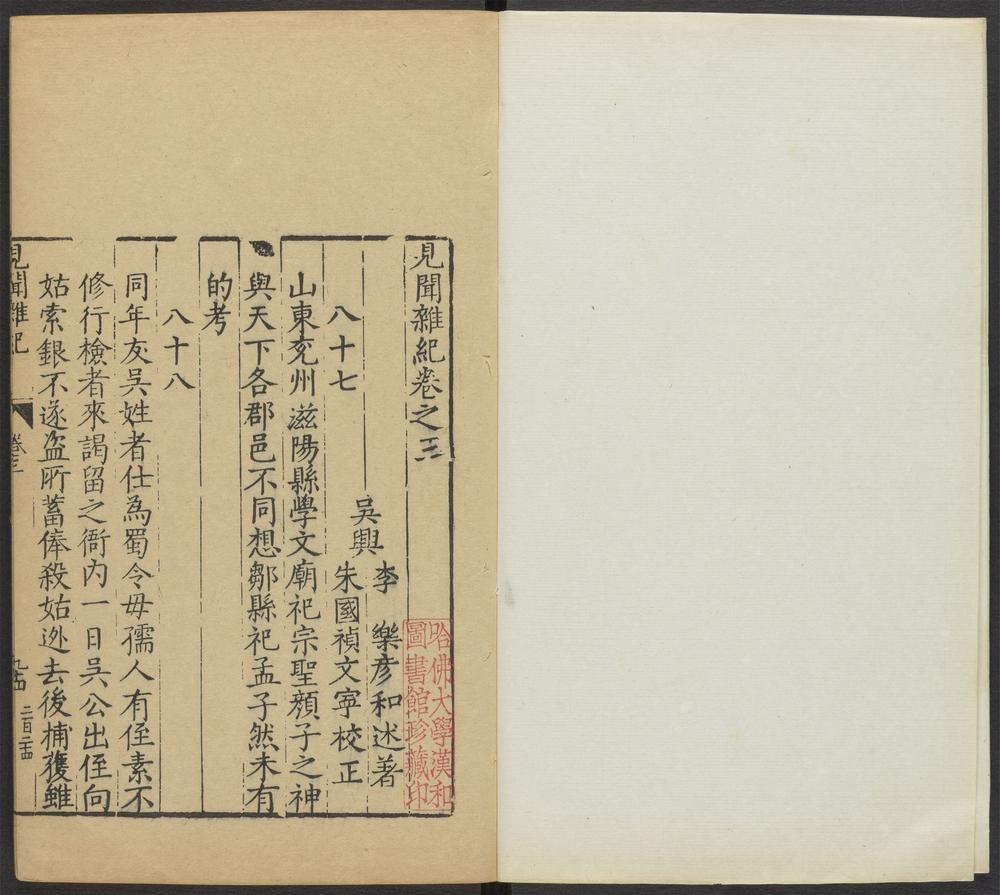 見聞雜紀卷之三
吳興
李樂彦和述著
朱國禎文寧校正
八十七
山東兖州滋陽縣學文廟祀宗聖顔子之神
與天下各郡邑不同想鄒縣祀孟子然未有
的考
八十八
同年友吳姓者仕為蜀令毋孺人有侄素不
修行檢者來謁留之衙内一日吳公出侄向
姑索銀不遂盗所蓄俸殺姑迯去後捕獲雖
見聞雜紀
卷三
二百二十四
哈佛大學漢和
圖書館珍藏印